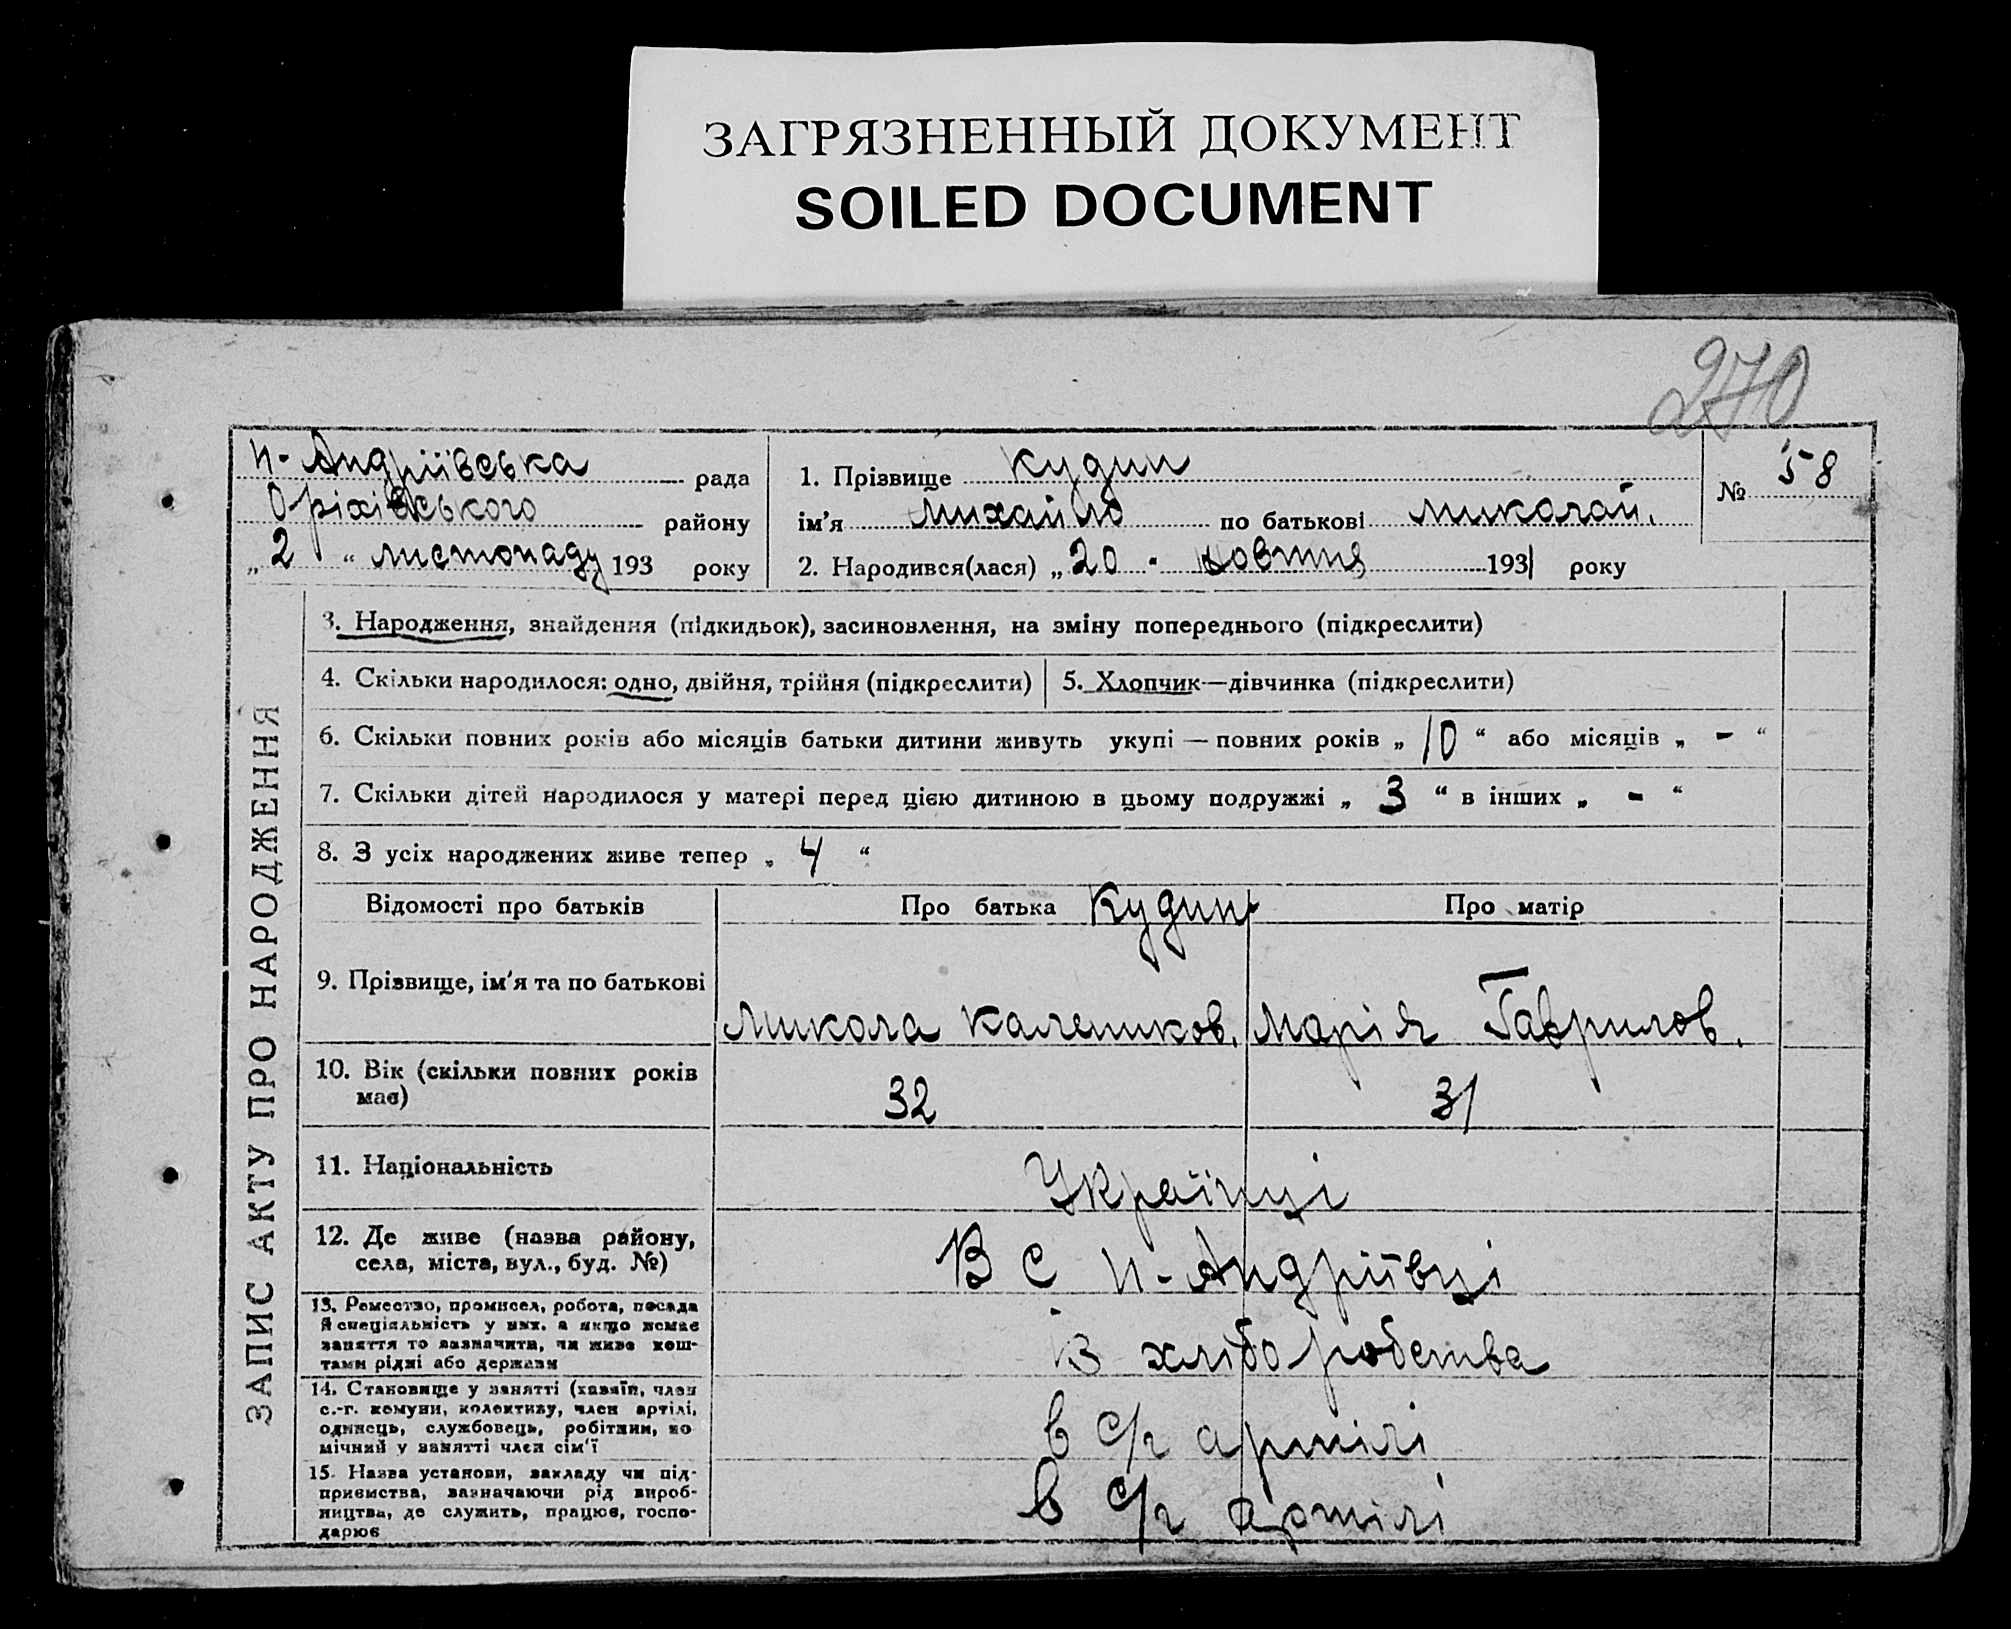 ЗАГРЯЗНЕННЫЙ ДОКУМЕНТ
SOILED DOCUMENT
270
Н-Андріївська рада
Оріхівського району
„2“ листопаду 193 року
1. Прізвище Кудин
ім'я Михайло по батькові Миколай.
2. Народився(лася) „20 " жовтня 1931 року
№ 58
ЗАПИС АКТУ ПРО НАРОДЖЕННЯ
3. Народження, знайдення (підкидьок), засиновлення, на зміну попереднього (підкреслити)
4. Скільки народилося: одно, двійня, трійня (підкреслити)
5. Хлопчик—дівчинка (підкреслити)
6. Скільки повних років або місяців батьки дитини живуть укупі — повних років „10“ або місяців „-“
7. Скільки дітей народилося у матері перед цією дитиною в цьому подружжі „3“ в інших „-“
8. З усіх народжених живе тепер „4“
Відомості про батьків
Про батька Кудин
Про матір
9. Прізвище, ім'я та по батькові
Микола Калеников.
Марія Гаврилов.
10. Вік (скільки повних років має)
32
31
11. Національність
Українці
12. Де живе (назва району,
села, міста, вул., буд. №)
В с Н-Андріївці
13. Ремество, промисел, робота, посада
й спеціяльність у них, а якщо немає
заняття то зазначити, чи живе кош-
тами рідні або держави
Із хліборобства
14. Становище у занятті (хазяїн, член
с.-г. комуни, колективу, член артілі,
одинець, службовець, робітник, по
мічний у занятті член сім'ї
в с/г артілі
15. Назва установи, закладу чи під-
приємства, зазначаючи рід вироб-
ництва, де служить, працює, госпо-
дарює
в с/г артілі